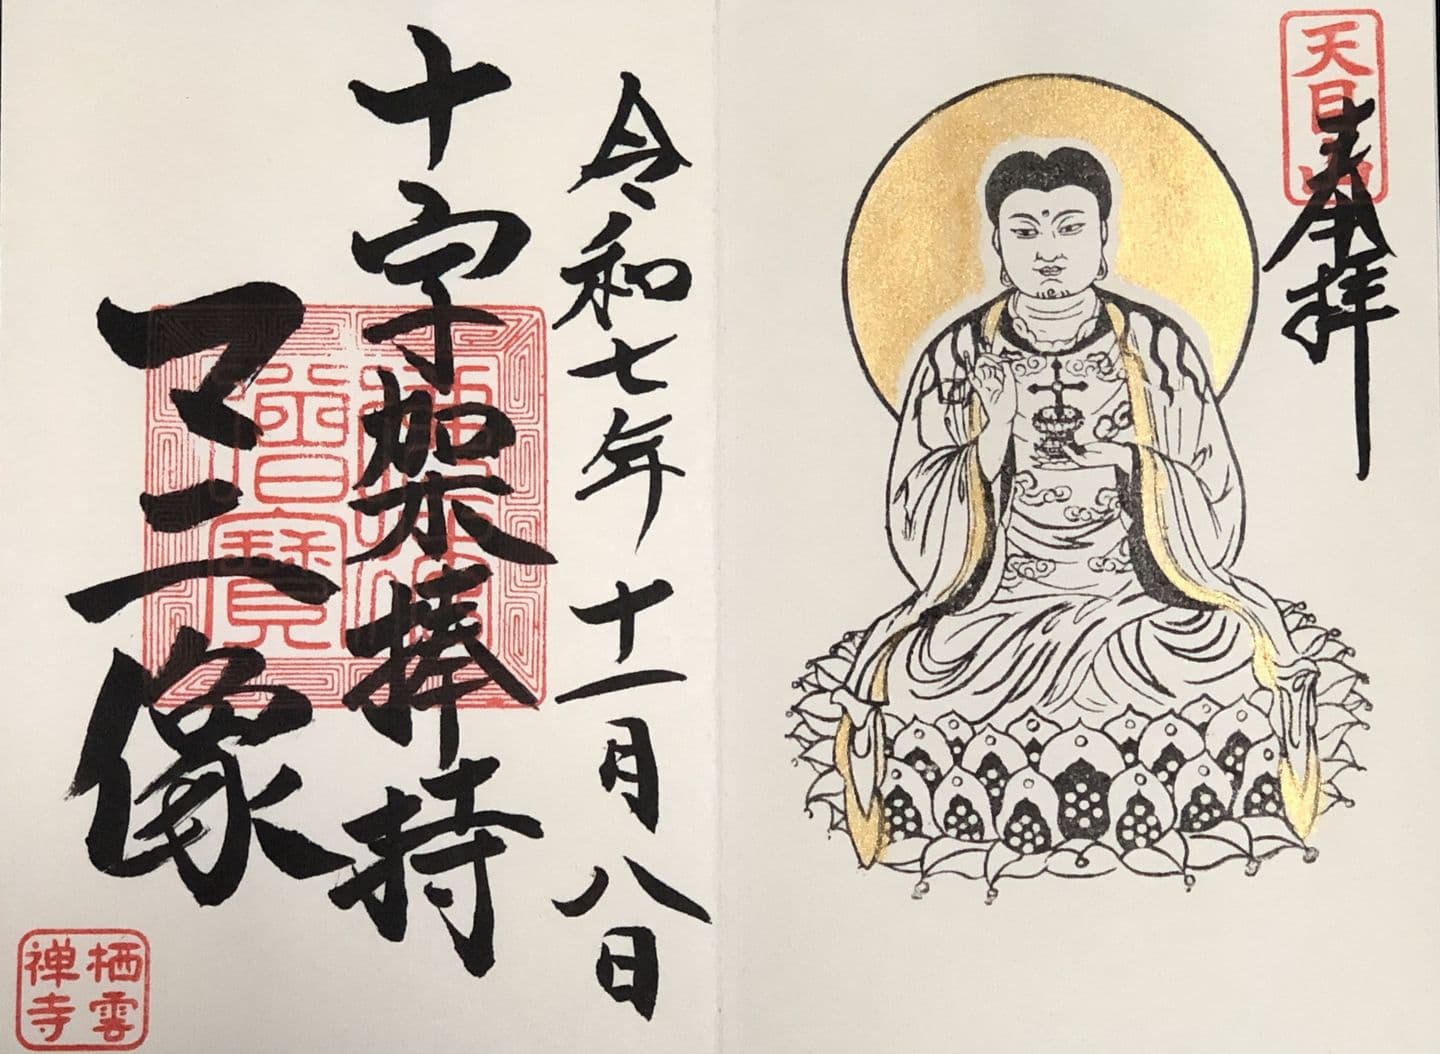 天目山
奉拝
令和七年十一月八日
十字架捧持
マニ像
栖雲
禅寺